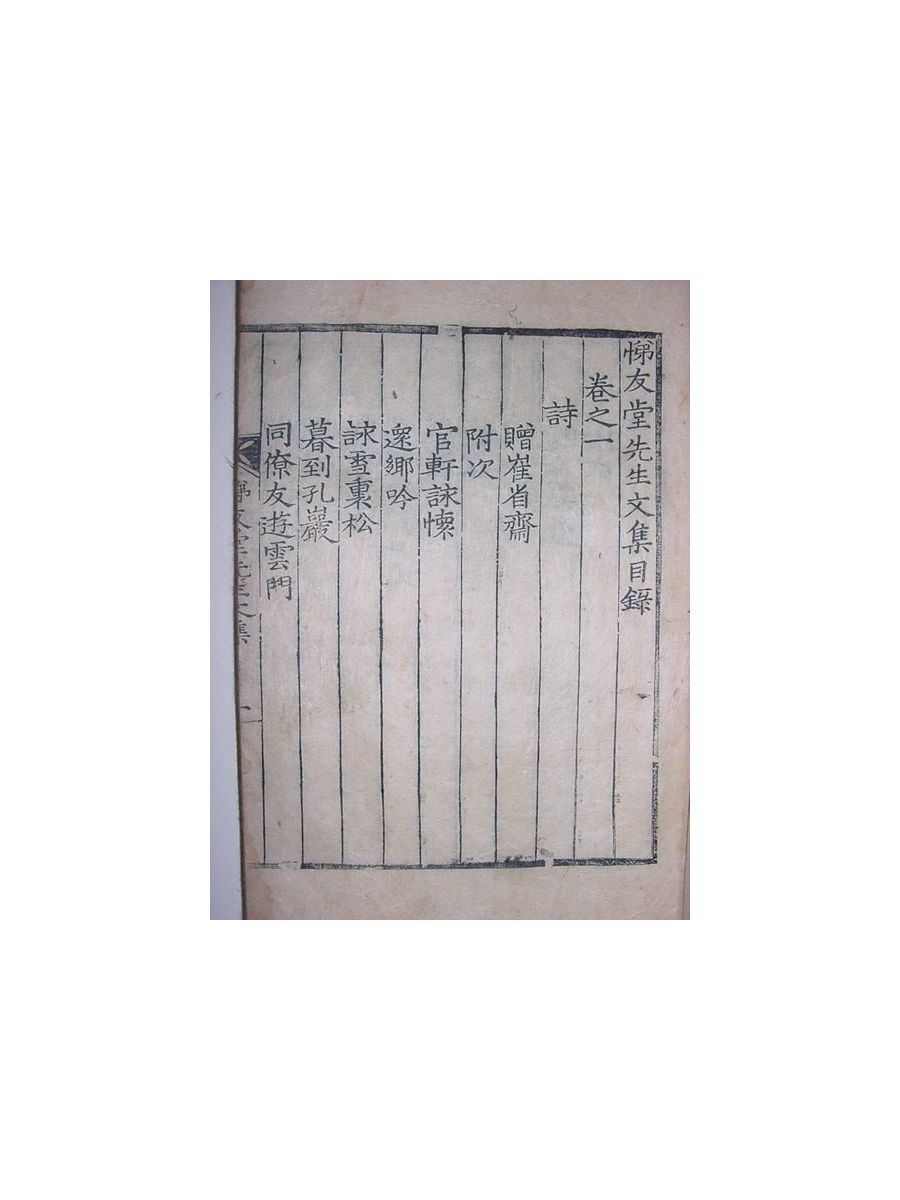 悌友堂先生文集目錄
卷之一
詩
贈崔省齋
附次
官軒詠懷
還鄉吟
詠雪裏松
暮到孔巖
同僚友遊雲門
悌友堂先生文集
一